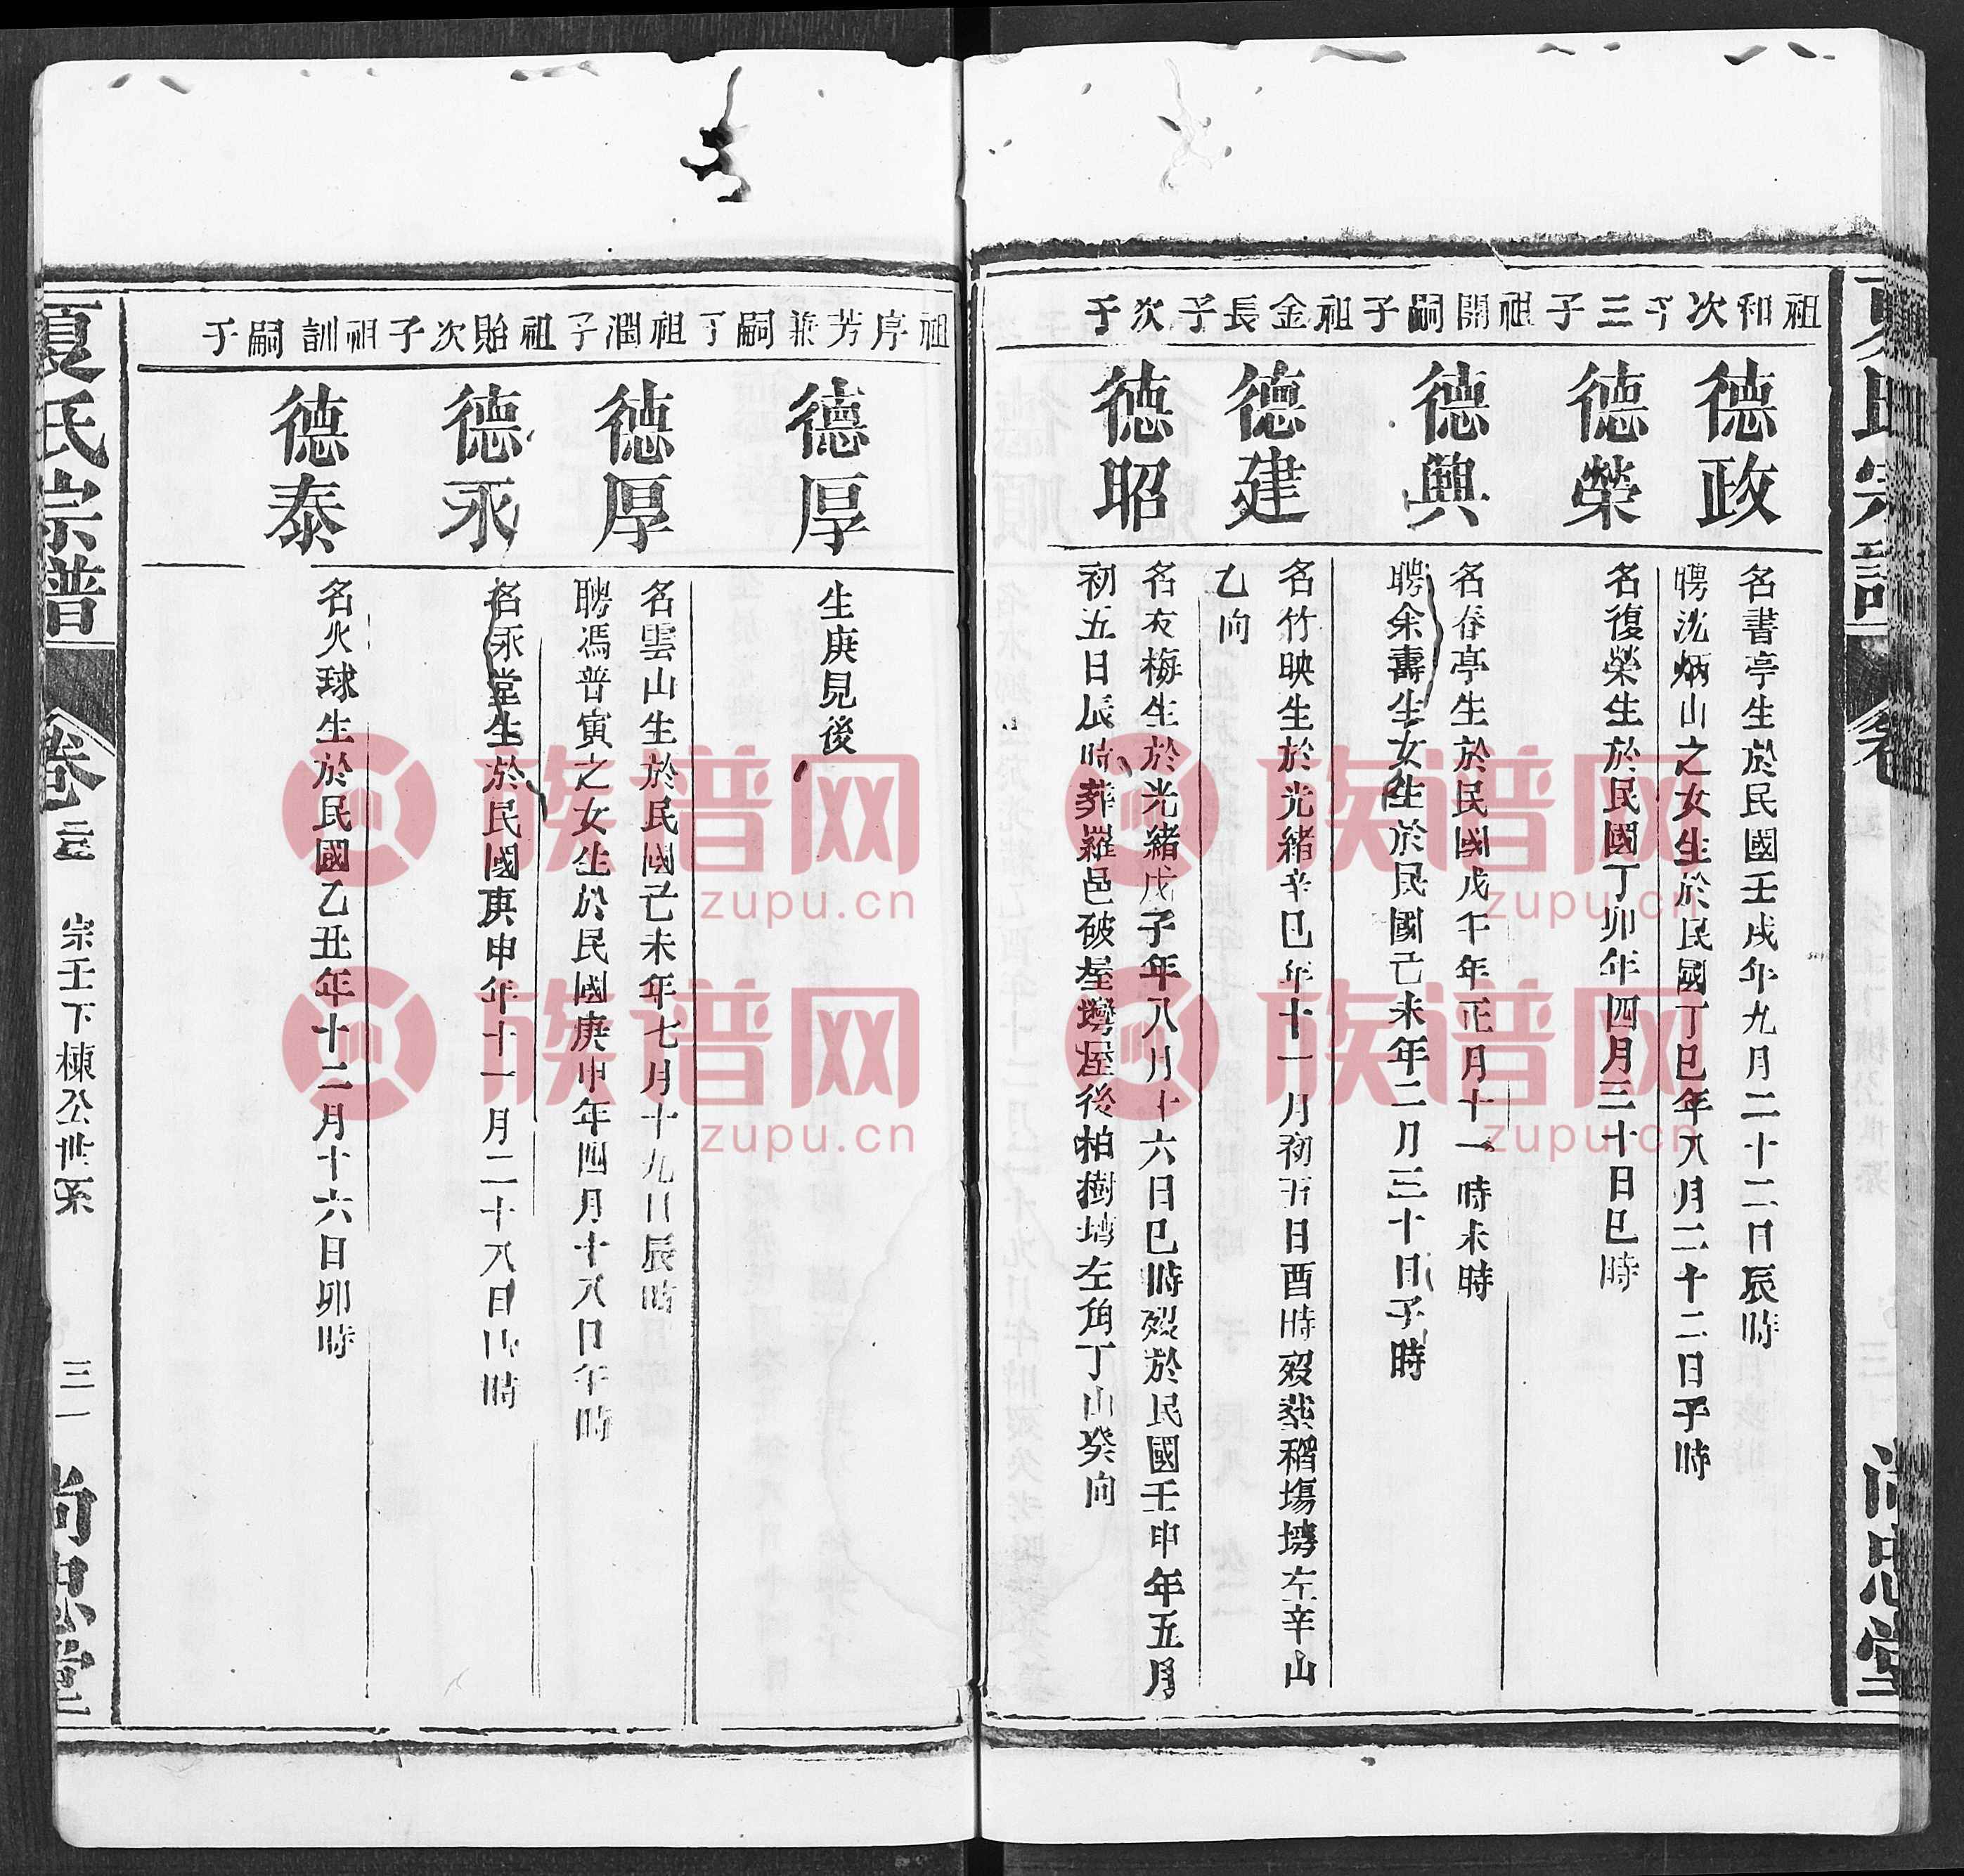 祖和次子
德政
名書亭生於民國壬戌年九月二十二日辰時
聘沈炳山之女生於民國丁巳年八月二十二日子時
三子
德榮
名復榮生於民國丁卯年四月三十日巳時
祖開嗣子
德興
名春亭生於民國戊午年正月十一時未時
聘余壽生女生於民國己未年二月三十日子時
祖金長子
德建
名竹映生於光緒辛巳年十一月初五日酉時歿葬稻塲塝左辛山
乙向
次子
德昭
名友梅生於光緒戊子年八月十六日巳時歿於民國壬申年五月
初五日辰時葬羅邑破屋灣屋後柏樹塝左角丁山癸向
祖序芳兼嗣子
德厚
生庚見後
祖潤子
德厚
名雲山生於民國己未年七月十九日辰時
聘馮普寅之女生於民國庚申年四月十八日午時
祖貽次子
德永
名永堂生於民國庚申年十一月二十八日 時
祖訓嗣子
德泰
名火球生於民國乙丑年十二月十六日卯時
夏氏宗譜
卷之三
宗壬下棟公世系
三一
尚忠堂
夏氏宗譜
卷
尚忠堂
族谱网
zupu.cn
族谱网
zupu.cn
族谱网
zupu.cn
族谱网
zupu.cn